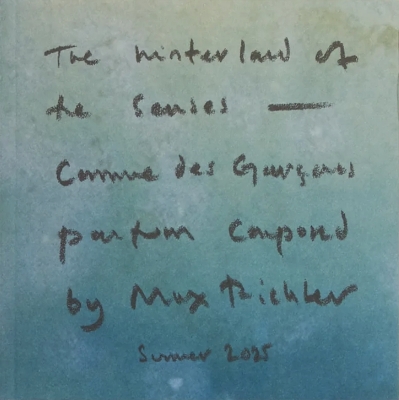 The hinterland of
the senses —
Comme des Garçons
parfum composed
by Max Richter
Summer 2025